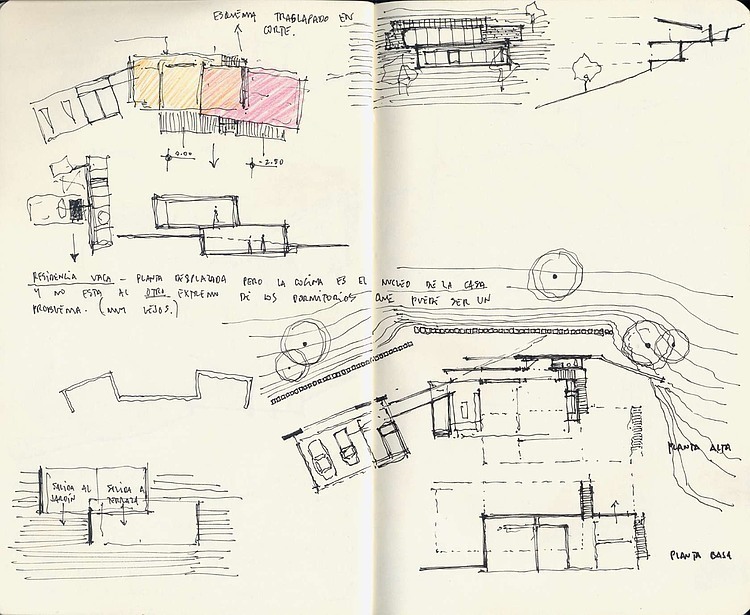 ESQUEMA TRASLAPADO EN
CORTE.
0.00
-2.50
RESIDENCIA VACA - PLANTA DESPLAZADA PERO LA COCINA ES EL NUCLEO DE LA CASA
Y NO ESTA AL OTRO EXTREMO DE LOS DORMITORIOS QUE PUEDE SER UN
PROBLEMA. (MUY LEJOS.)
SALIDA AL
JARDÍN
SALIDA A
TERRAZA
PLANTA ALTA
PLANTA BAJA